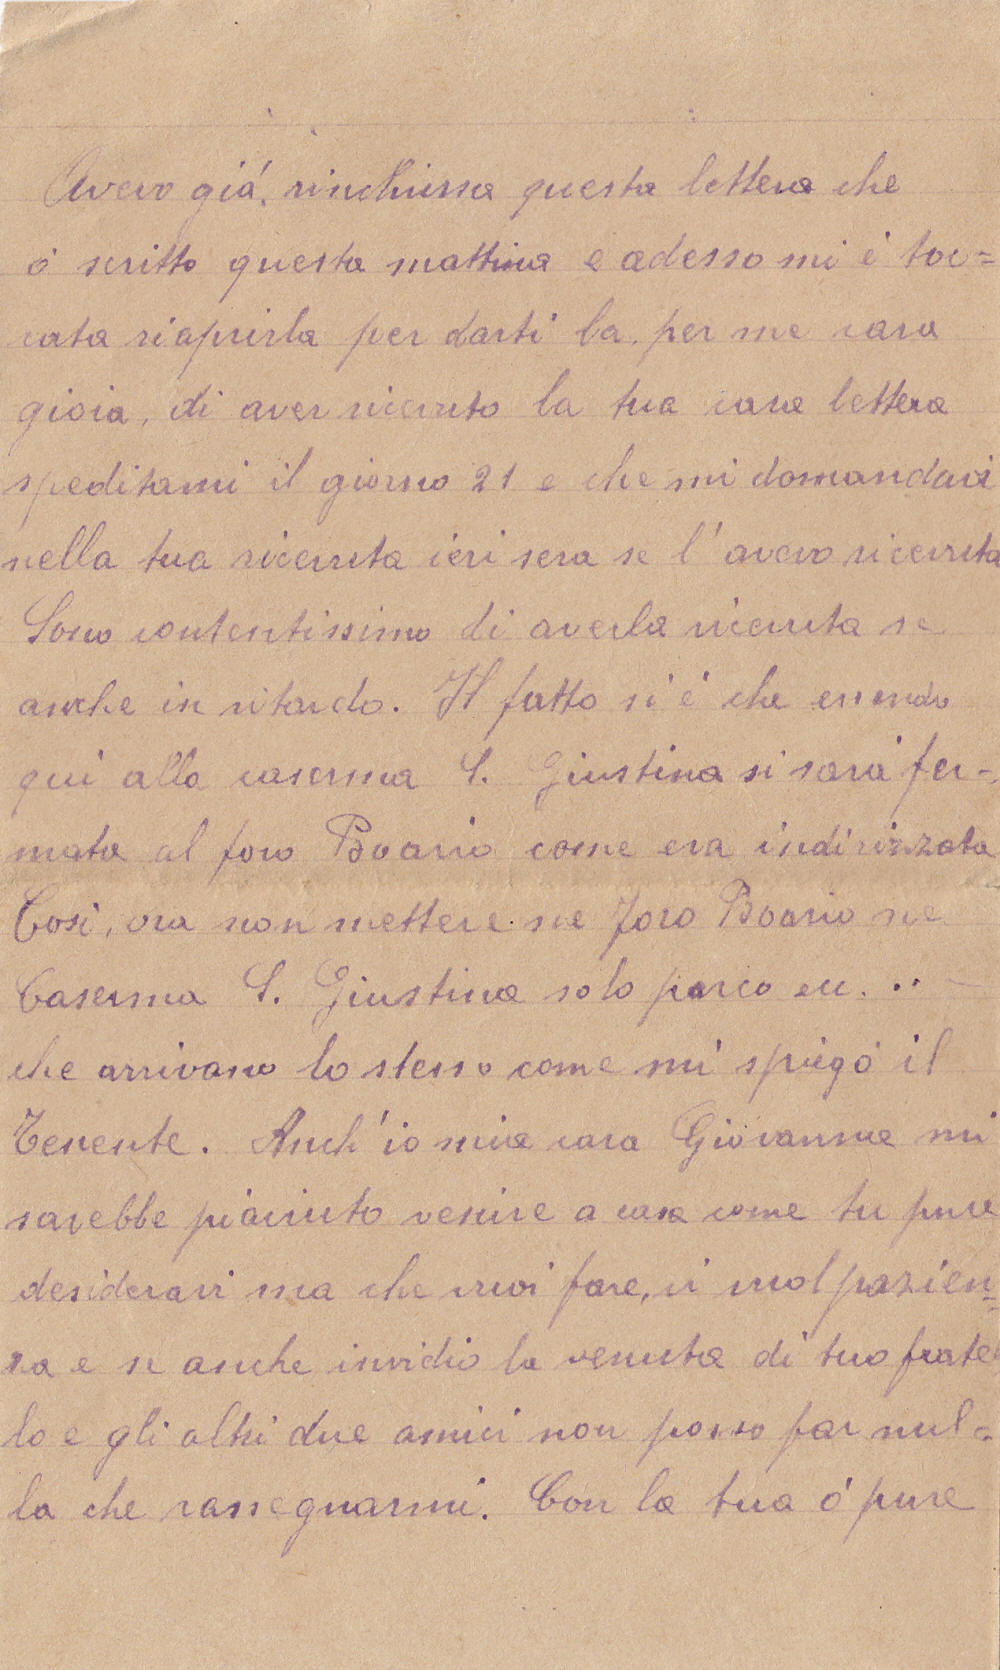 Avevo giá, rinchiussa questa lettera che
ó scritto questa mattina e adesso mi é toc=
cata riaprirla per darti la, per me cara
gioia, di aver ricevuto la tua cara lettera
speditami il giorno 21 e che mi domandavi
nella tua ricevuta ieri sera se l'avevo ricevuta
Sono contentissimo di averla ricevuta se
anche in ritardo. Il fatto si é che essendo
qui alla caserma S. Giustina si sará fer-
mata al foro Boario come era indirizzata
Cosi, ora non mettere ne Foro Boario ne
Caserma S. Giustina solo parco ecc...
che arrivano lo stesso come mi spiegó il
Tenente. Anch'io mia cara Giovanna mi
sarebbe piaciuto venire a casa come tu pure
desideravi ma che vuoi fare, ci vuol pazien=
za e se anche invidio la venuta di tuo fratel
lo e gli altri due amici non posso far nul=
la che rassegnarmi. Con la tua ó pure